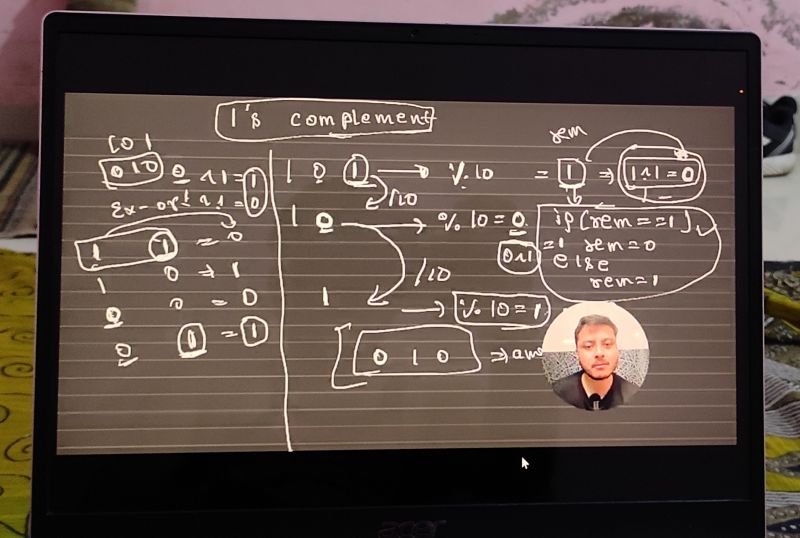 1's complement
101
010
0 ^ 1 = 1
Ex-or 1 ^ 1 = 0
1 1 = 0
1 0 → 1
0 0 = 0
0 1 = 1
1 0 1 → % 10 = 1 ⇒ 1 ^ 1 = 0
rem
/10
1 0 → % 10 = 0
0 ^ 1 = 1
if (rem == 1)
rem = 0
else
rem = 1
/10
1 → % 10 = 1
0 1 0 ⇒
acer